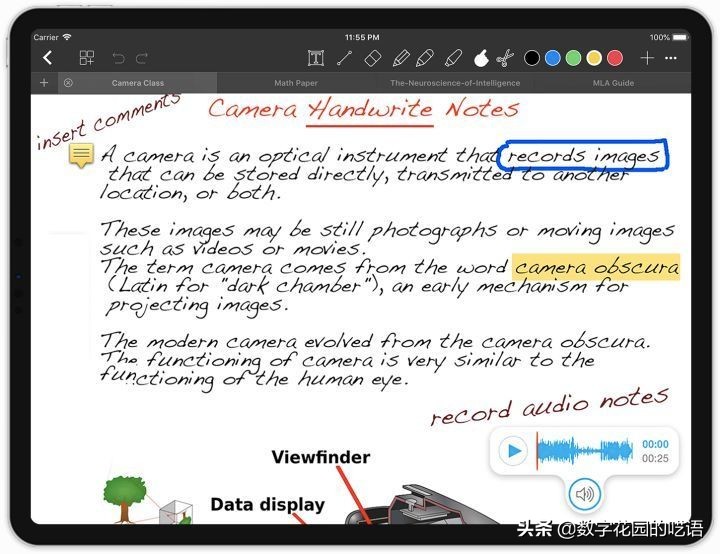 Carrier
11:55 PM
100%
Camera Class
Math Paper
The-Neuroscience-of-Intelligence
MLA Guide
insert comments
Camera Handwrite Notes
A camera is an optical instrument that records images
that can be stored directly, transmitted to another
location, or both.
These images may be still photographs or moving images
such as videos or movies.
The term camera comes from the word camera obscura
(Latin for "dark chamber"), an early mechanism for
projecting images.
The modern camera evolved from the camera obscura.
The functioning of camera is very similar to the
functioning of the human eye.
record audio notes
00:00
00:25
Viewfinder
Data display
头条 @数字花园的呓语